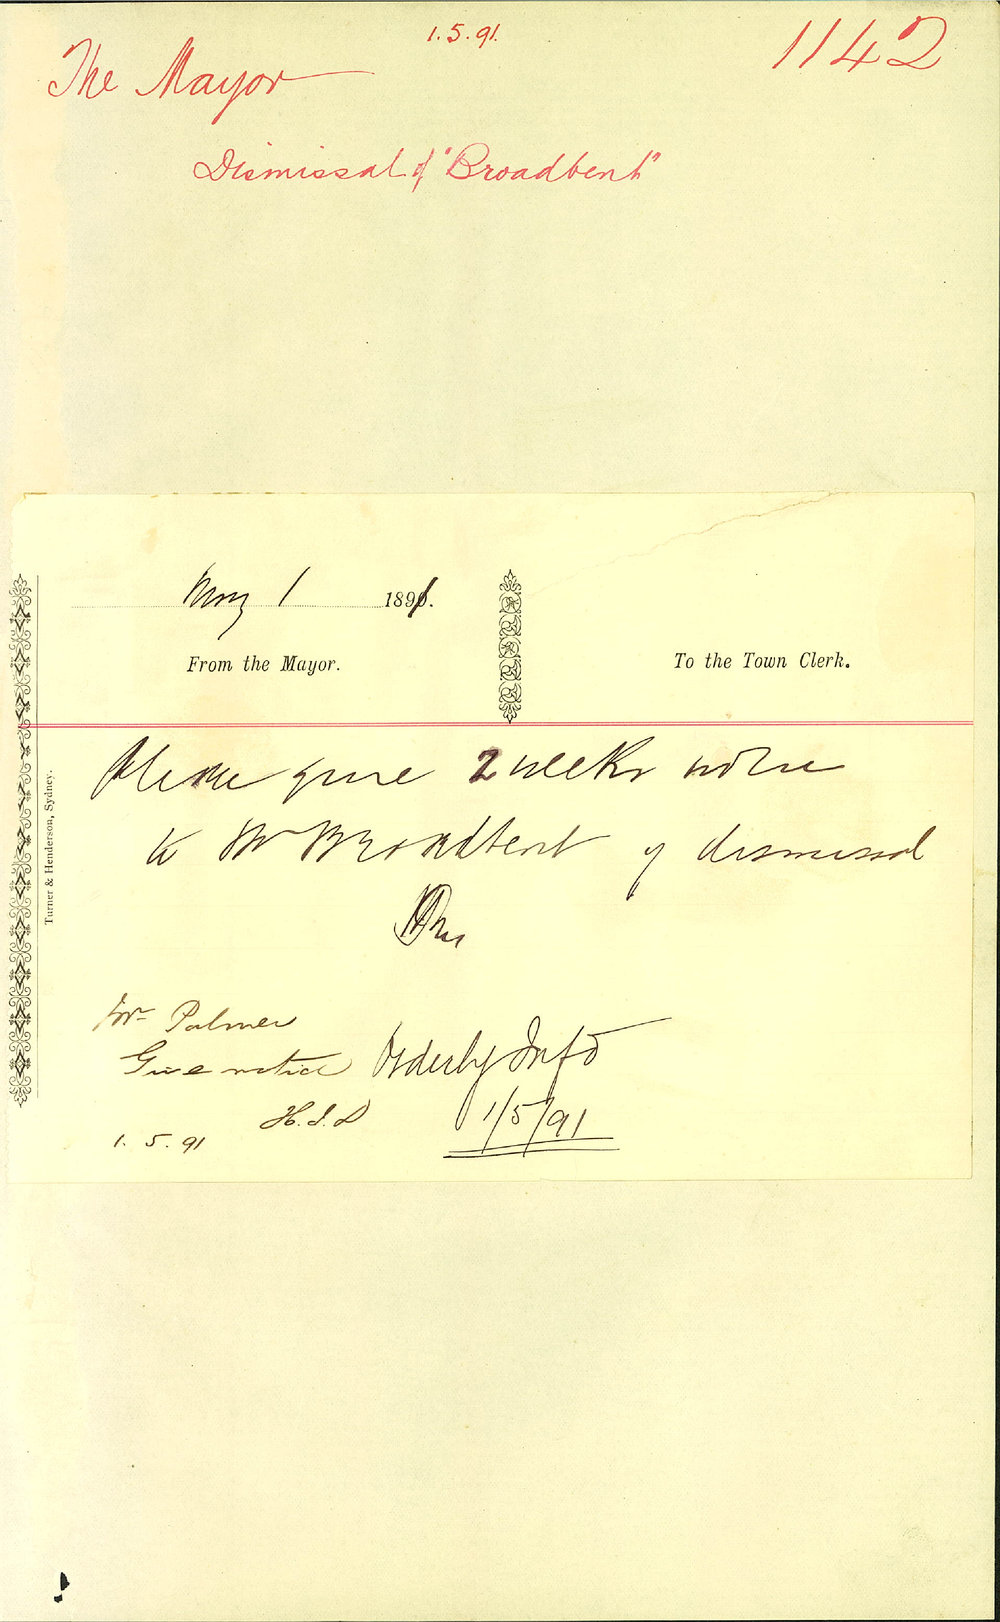 1.5.91.
1142
The Mayor
Dismissal of "Broadbent"
May 1 1891.
From the Mayor.
To the Town Clerk.
Please give 2 weeks notice
to Mr Broadbent of dismissal
Mr Palmer
Give notice
H.J.D
1. 5. 91
Orderly Infd
1/5/91
Turner & Henderson, Sydney.